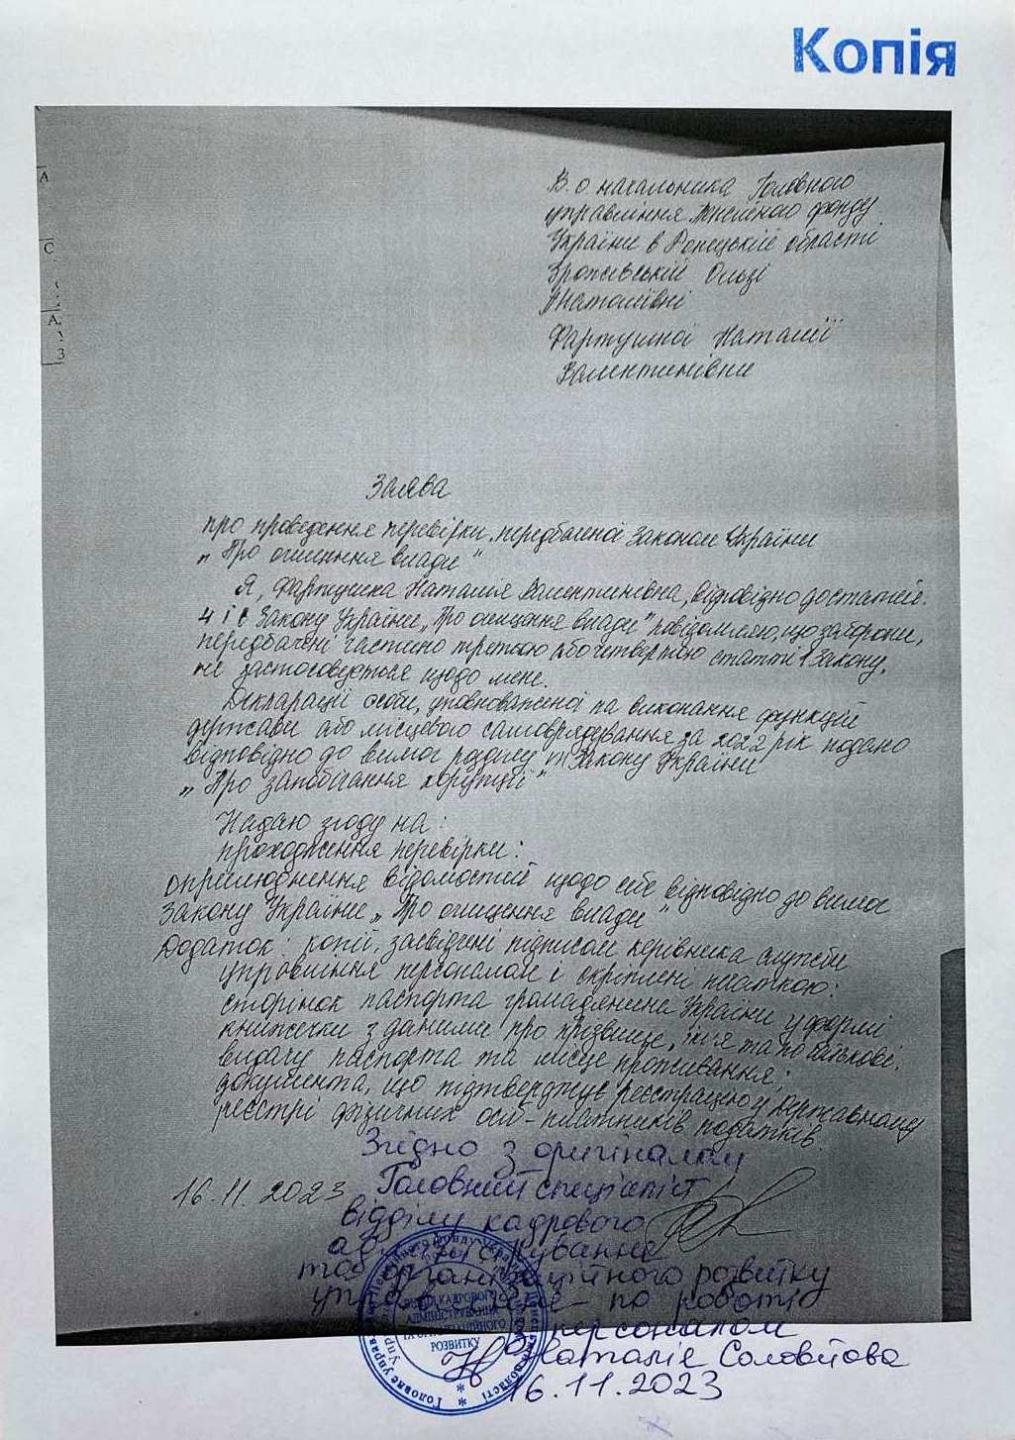 Копія
А
С
А
З
В. о начальника Головного
управління Пенсійного фонду
України в Донецькій області
Ользі
Анатоліївні
Фартушної Наталії
Валентинівни
Заява
про проведення перевірки, передбаченої Законом України
„Про очищення влади"
Я, Фартушна Наталія Валентинівна, відповідно до статей
4 і 6 Закону України „Про очищення влади" повідомляю, що заборони,
передбачені частиною третьою або четвертою статті 1 Закону,
не застосовується щодо мене.
Декларації особи, уповноваженої на виконання функцій
держави або місцевого самоврядування за 2022 рік подано
відповідно до вимог розділу Закону України
„Про запобігання корупції"
Надаю згоду на:
проходження перевірки:
оприлюднення відомостей щодо себе відповідно до вимог
Закону України „Про очищення влади"
Додаток: копії, засвідчені підписом керівника служби
управління персоналом і скріплені печаткою:
сторінок паспорта громадянина України у формі
книжечки з даними про прізвище, ім'я та по батькові,
видачу паспорта та місце проживання;
документа, що підтверджує реєстрацію у Державному
реєстрі фізичних осіб-платників податків.
Згідно з оригіналом
16.11.2023 Головний спеціаліст
відділу кадрового
адміністрування
та організаційного розвитку
управління по роботі
з персоналом
Наталія Соловйова
16.11.2023
ВІДДІЛ КАДРОВОГО
АДМІНІСТРУВАННЯ
ТА ОРГАНІЗАЦІЙНОГО
РОЗВИТКУ